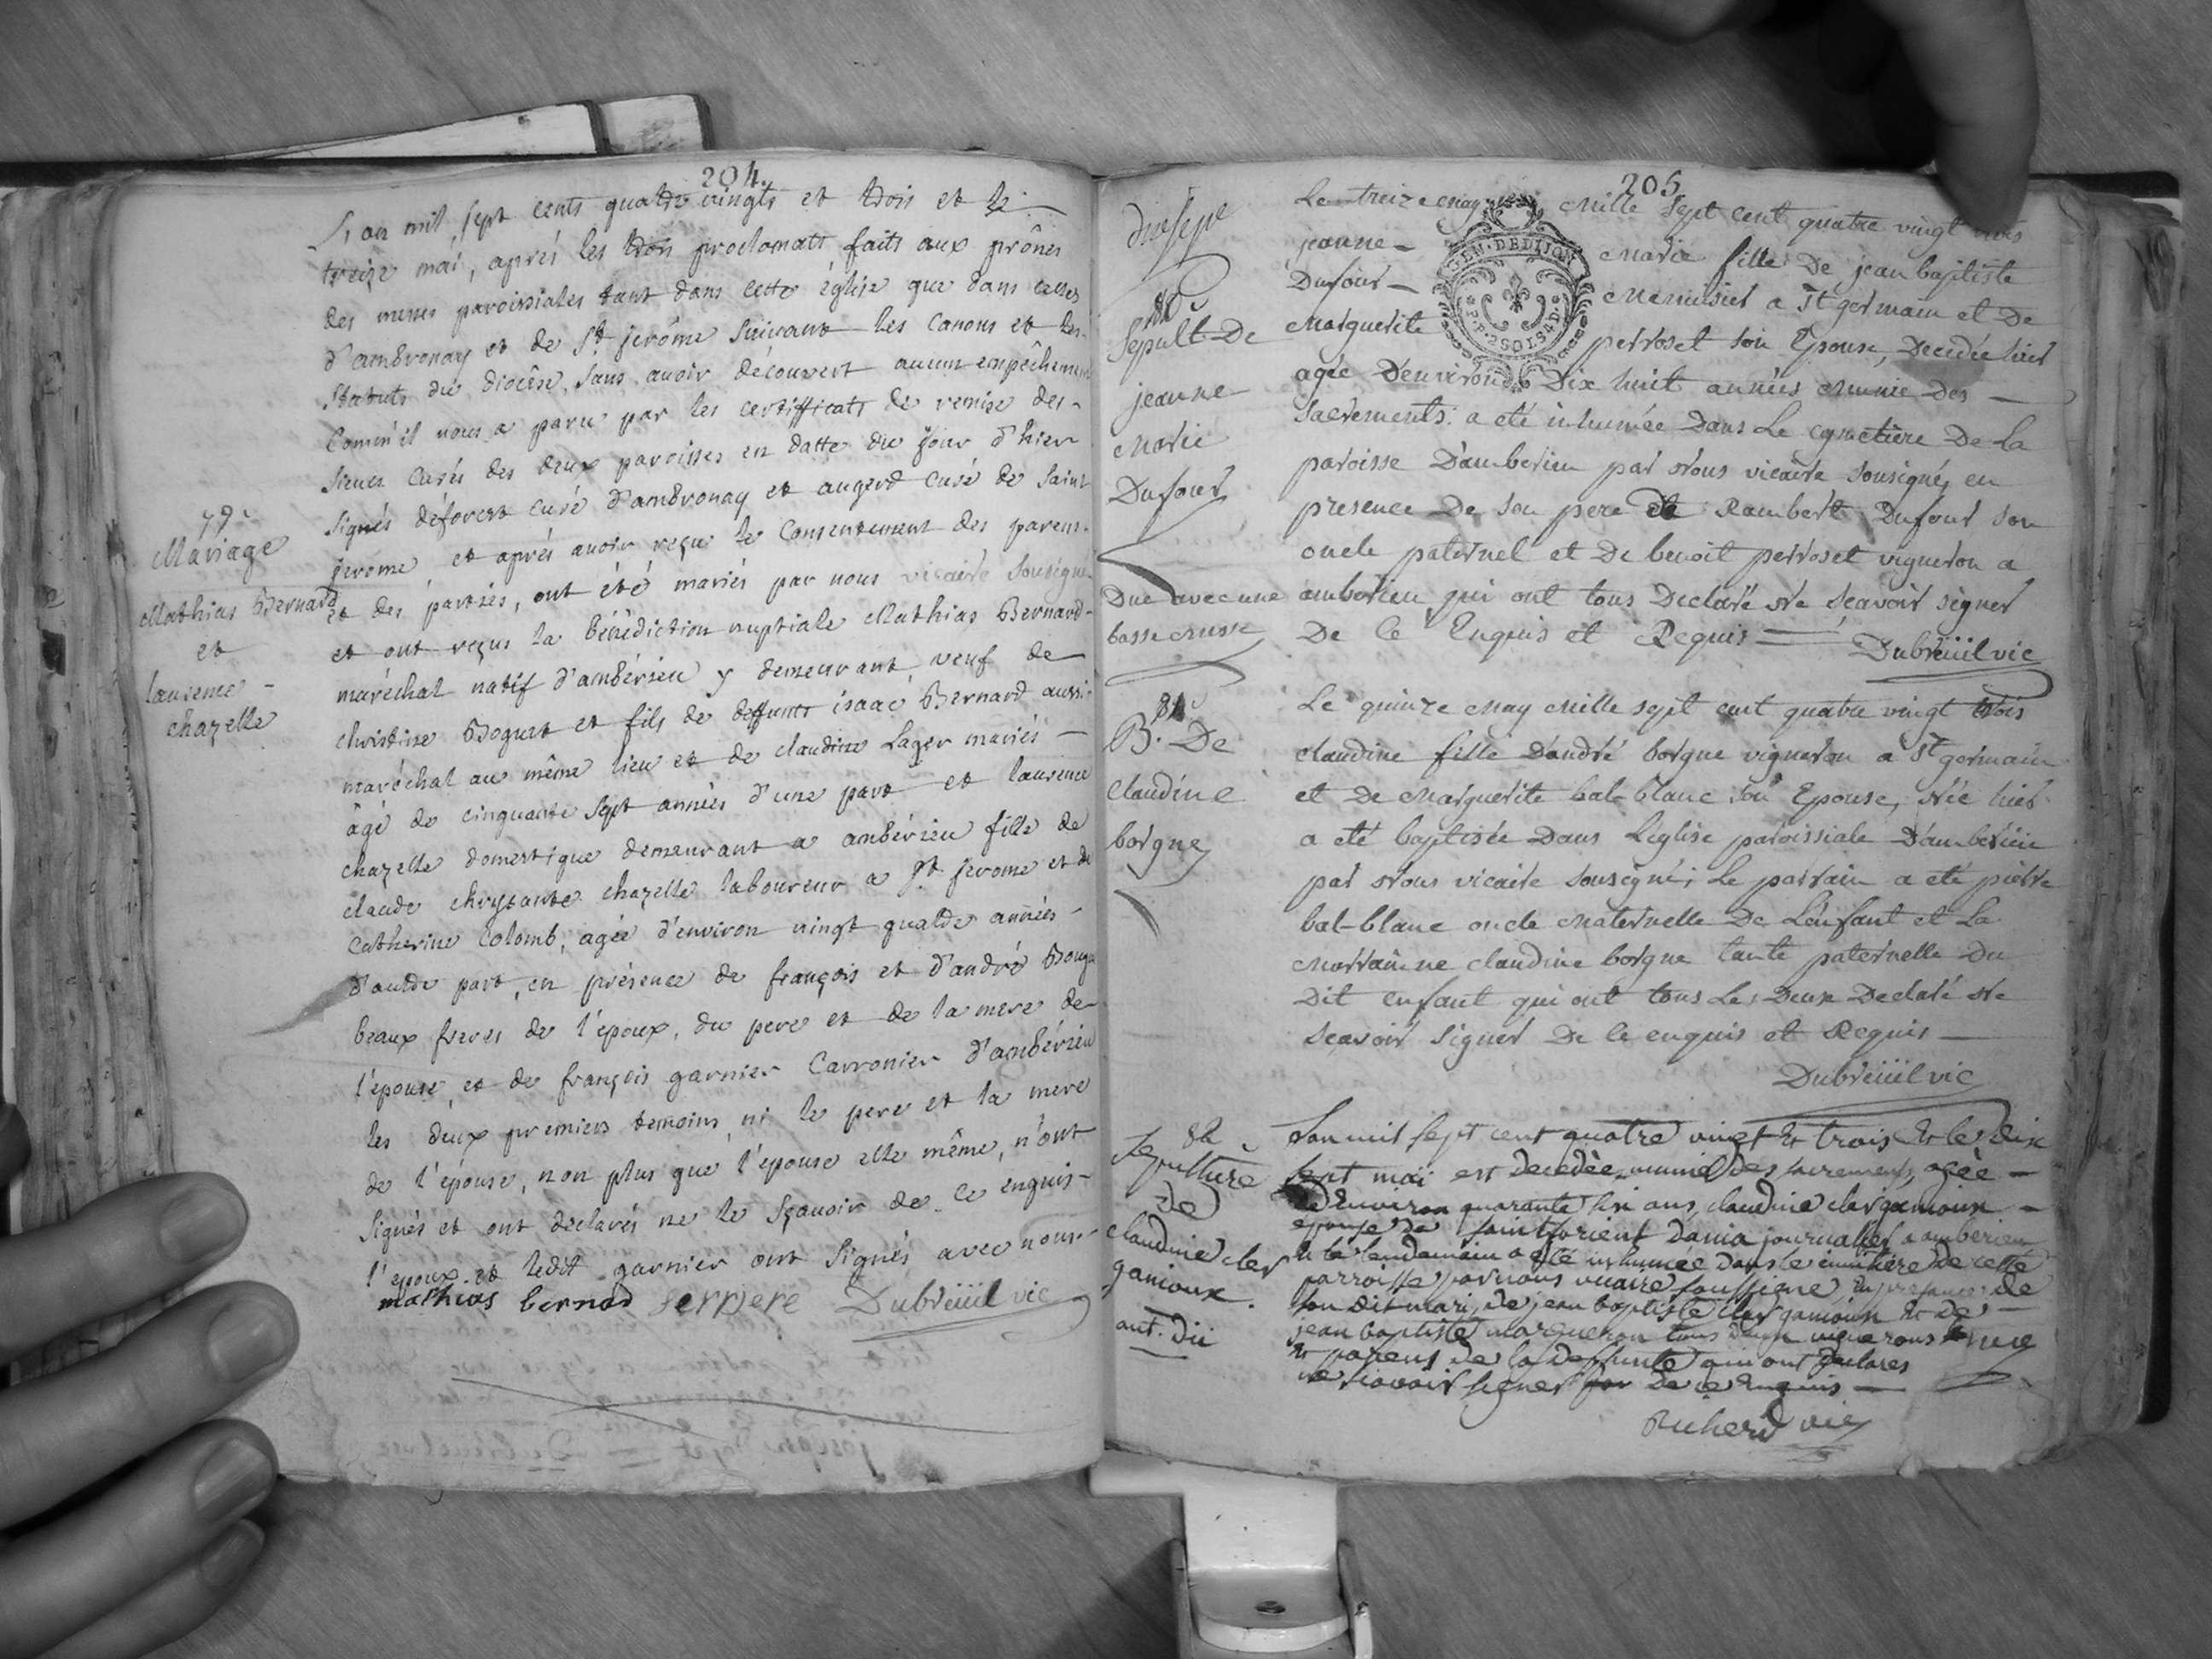 204.
L'an mil sept cents quatre vingts et trois et le
treize mai, aprés les trois proclamats faits aux prônes
des messes paroissiales tant dans cette église que dans celles
d'ambronay et de St jerôme suivant les canons et les
statuts du diocèse, sans avoir découvert aucun empêchement
comm'il nous a paru par les certifficats de remise des
sieurs curés des deux paroisses en datte du jour d'hier
signés déforest curé d'ambronay et augerd curé de saint
jerome et aprés avoir reçu le consentement des parens
et des parties, ont été mariés par nous vicaire sousigné
et ont reçus la bénédiction nuptiale Mathias Bernard
maréchal natif d'ambérieu y demeurant, veuf de
christine Bogurt et fils de deffunts isaac Bernard aussi
maréchal au même lieu et de claudine Lager mariés
âgé de cinquante sept années d'une part et laurence
chazelle domestique demeurant a ambérieu fille de
claude chrysante chazelle laboureur a St jerome et de
catherine Colomb, agée d'environ vingt quatre années
d'autre part, en présence de françois et d'andré
beaux freres de l'époux, du pere et de la mere de
l'épouse, et de françois garnier Carronier d'ambérieu
les deux premiers temoins ni le pere et la mere
de l'épouse, non plus que l'épouse elle même, n'ont
signés et ont declarés ne le sçavoir de ce enquis
l'epoux et ledit garnier ont signés avec nous
mathias bernard Dubreüil vic
79e
Mariage
Mathias Bernard
et
laurence
chazelle
205
Le treize may mille sept cent quatre vingt trois
jeanne marie fille De jean baptiste
Dufour menuisier a St germain et De
marguerite perroset son Epouse, Decedée hier
agée D'environ Dix huit années munie Des
sacrements: a eté inhumée Dans Le cymetiere De La
paroisse D'amberieu par Nous vicaire sousigné, en
presence De son pere de Rambert Dufour son
oncle paternel et De benoit perroset vigneron a
amberieu qui ont tous Declaré Ne Sçavoir signer
De Ce Enquis et Requis
Dubreüil vic
80e
Sepult. De
jeanne
Marie
Dufour
Due avec une
basse messe
GEN. DE DIJON
Le quinze may mille sept cent quatre vingt trois
claudine fille D'andré borgne vigneron a St germain
et De Marguerite bal-blanc son Epouse, Née hier
a eté baptisée Dans L'église paroissiale D'amberieu
par Nous vicaire sousigné; Le parrain a eté pierre
bal-blanc oncle maternelle De L'enfant et La
marrainne claudine borgne tante paternelle Du
Dit enfant qui ont tous Les Deux Declaré Ne
Sçavoir Signer De Ce enquis et Requis
Dubreüil vic
81e
B. De
Claudine
borgne
L'an mil sept cent quatre vingt & trois & le dix
sept mai est decedée, munie des sacrements, agée
d'environ quarante six ans, claudine clerganioux
epouse de saintforient Damia journallier a amberieu
& le lendemain a eté inhumée dans le cimitiere de cette
parroisse par nous vicaire soussigné, en presence de
son dit mari, de jean baptiste clerganioux & de
jean baptiste margueron tous deux vignerons
& parens de la deffunte qui ont declarés
ne sçavoir signer de ce enquis
Richerd vic
82
Sepulture
de
claudine cler
ganioux.